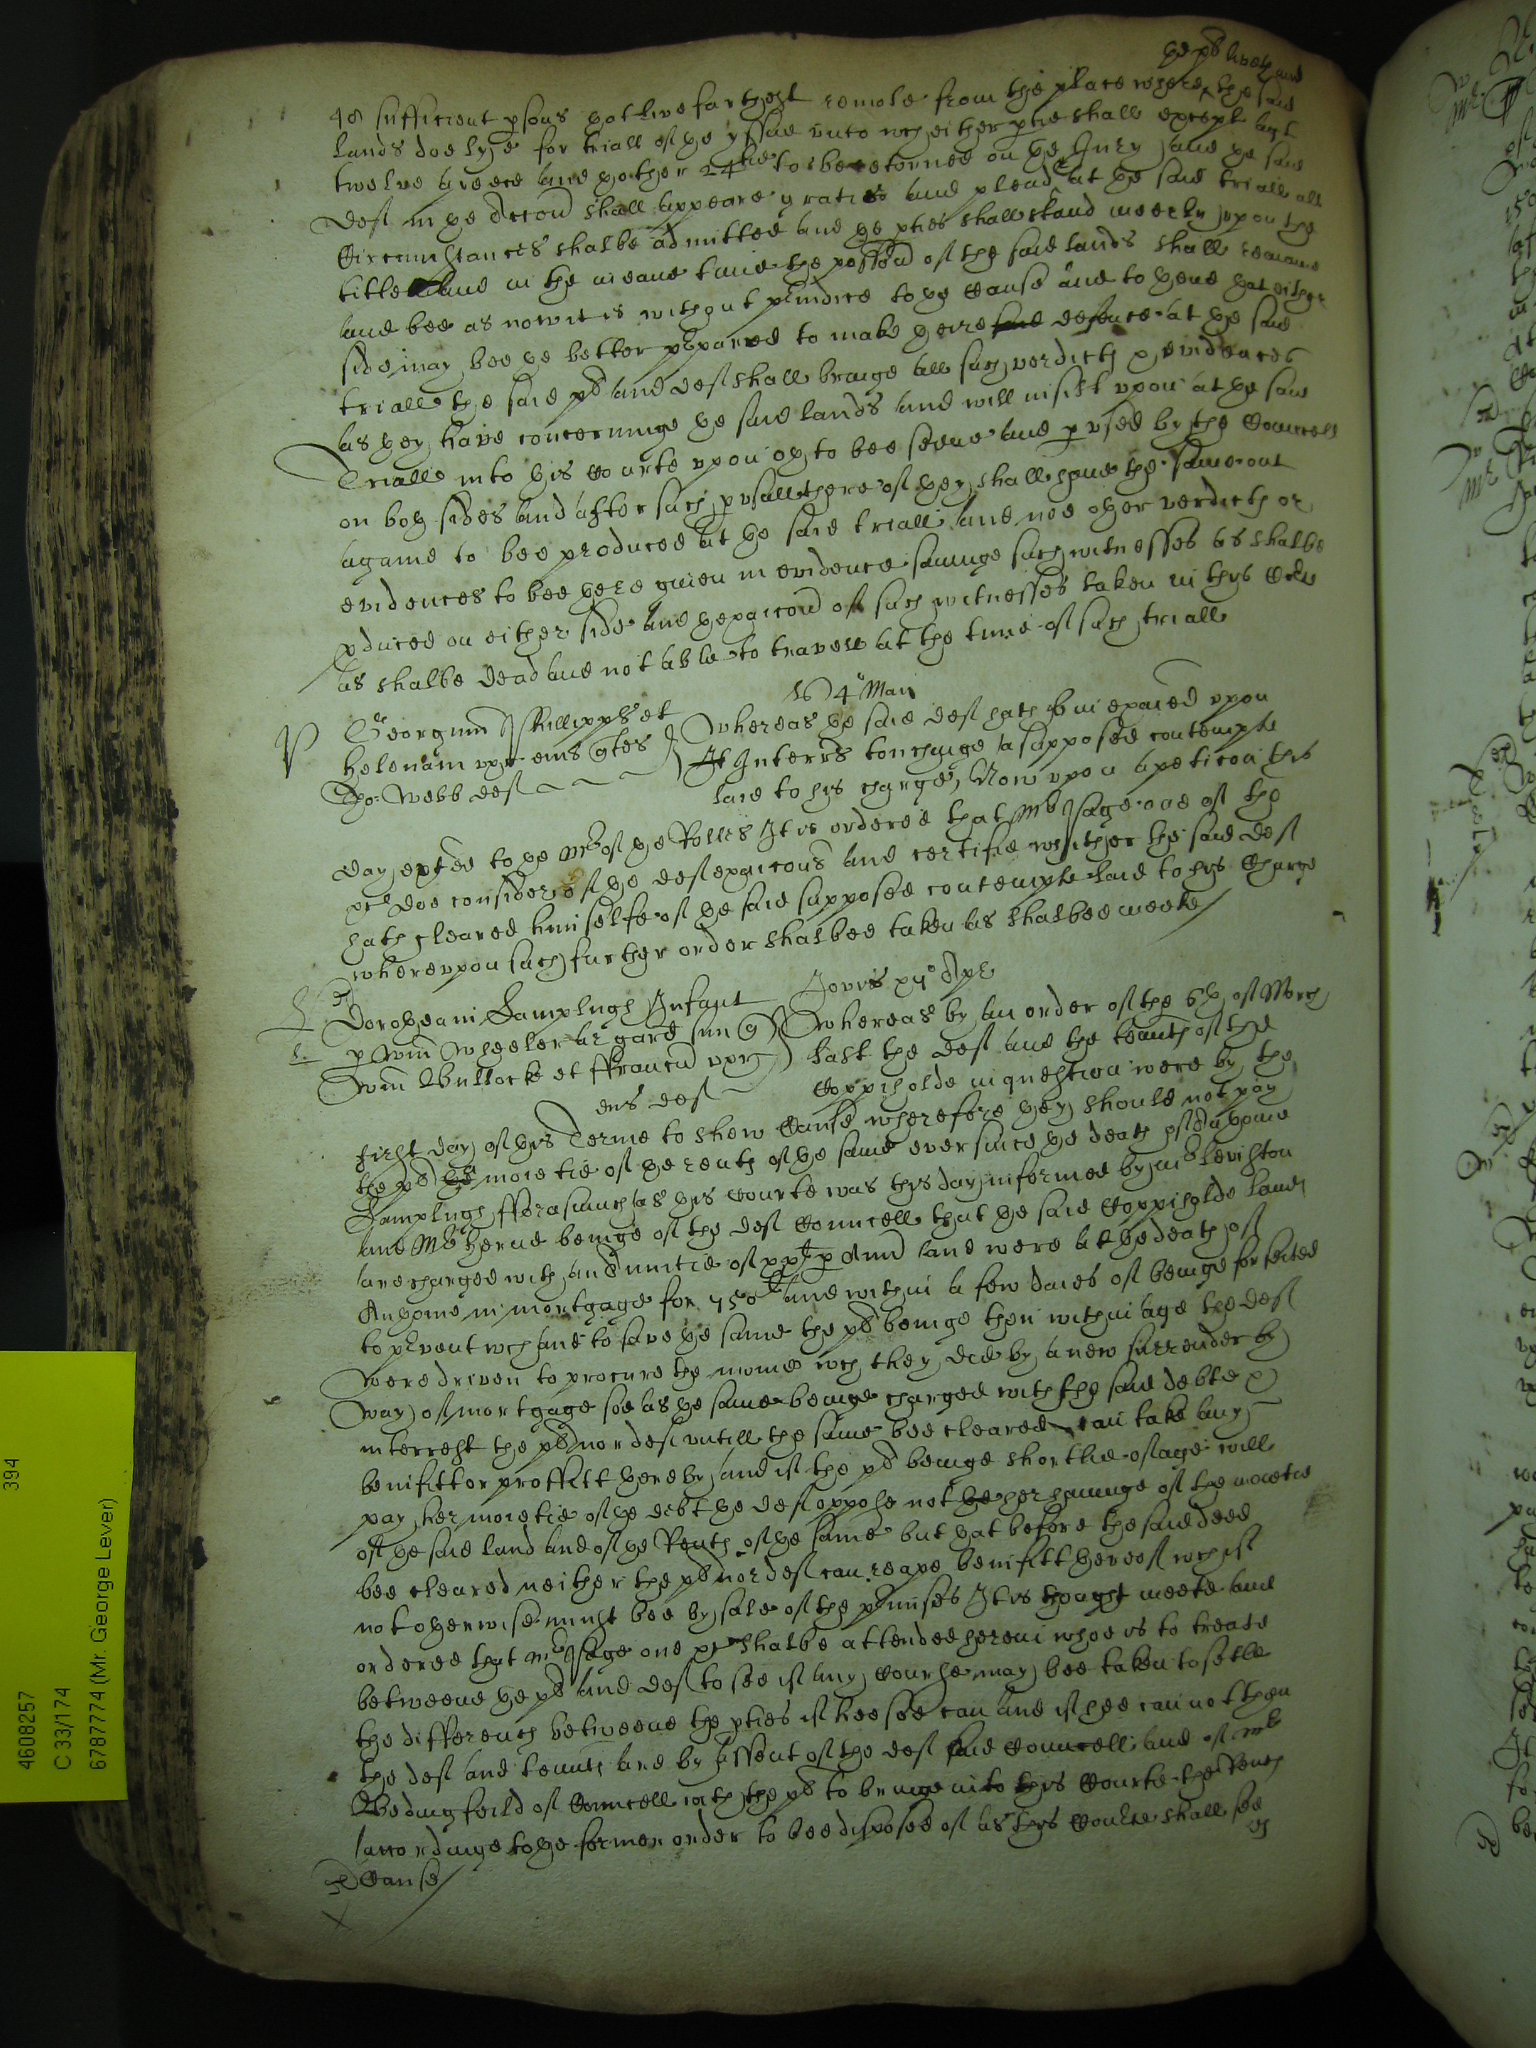 ye pl liveth and
48 sufficient psons yt live farthest remote from the place where the said
lands doe lye for triall of ye yssue unto wch either ptie shall except agt
twelve a peece and ye other 24tie to be retorned on ye Jury and ye said
def in ye accon shall appeare gratis and plead at ye said triall all
Circumstances shalbe admitted and ye pties shall stand meerly upon the
title and in the meane time the possion of the said lands shall remaine
and bee as now it is without preiudice to ye Cause and to yend yat either
side may bee ye better ppared to make yeire defence at ye said
triall the said pl and def shall bringe all such verdicts & evidences
as yey have concerninge ye said lands and will insist upon at ye said
Triall into this Courte upon oth to bee seene and pused by the Councell
on both sides and after such pusall thereof yey shall have the same out
againe to bee produced at ye said triall and noe other verdicts or
evidences to bee yere given in evidence savinge such witnesses as shalbe
pduced on either side and yexaicons of such witnesses taken in this Corte
as shalbe dead and not able to travell at the time of such triall
4o Maii
Georgium Phillipps et
Helenam uxr eius qtes
Tho: Webb def
Whereas ye said def hath bin exaied upon
Interrs touchinge a supposed contempte
laid to his charge, Now upon a peticon this
day exhted to ye Mr of ye Rolles It is ordered that Mr Page one of the
doe consider of ye def exaicons and certifie whither the said def
hath cleared himselfe of ye said supposed contempte laid to his Charge
whereupon such further order shalbee taken as shalbee meete
Jovis Apl
Dorotheam Lamplugh Infant
p Willm Wheeler ar gard suu q
Willm Bullocke et Francu uxr
eius def
Whereas by an order of the 6th of March
last the def and the tenants of the
Coppiholde in question were by the
first day of this Terme to shew Cause wherefore yey should not pay
the pl moietie of ye rents of ye same ever since ye death of Anthonie
Lamplugh, fforasmuch as this Courte was this day informed by Mr Leviston
and Mr Herne beinge of the def Councell that ye said Coppiholde lands
are charged with an Annuitie of xxli p Annu and were at ye death of
Anthonie in mortgage for 750li and within a few daies of beinge forfeited
to pvent wch and to save ye same the pl beinge then within age the def
were driven to procure the monie wch they did by a new surrender by
way of mortgage soe as ye same beinge charged with the said debte &
interrest the pl nor def untill the same bee cleared can take any
benifitt or proffitt thereby and if the pl beinge shortlie of age will
pay her moietie of ye debt ye def oppose not her havinge of the moietie
of ye said land and of ye Rents of ye same but yat before the said deed
bee cleared neither the pl nor def can reape benifitt thereof wch if
not otherwise must bee by sale of the pmisses It is thought meete and
ordered that Mr Page one shalbe attended herein whoe is to treate
betweene ye pl and def to see if any Course may bee taken to setle
the differencs betweene the pties if hee soe can and if hee can not then
the def and tennts are by assent of the def said Councell and of Mr
Bedingfeild of Councell with the pl to bringe into this Courte the Rents
accordinge to ye former order to bee disposed of as this Courte shall see
Cause
4608257
C 33/174
394
6787774 (Mr. George Lever)